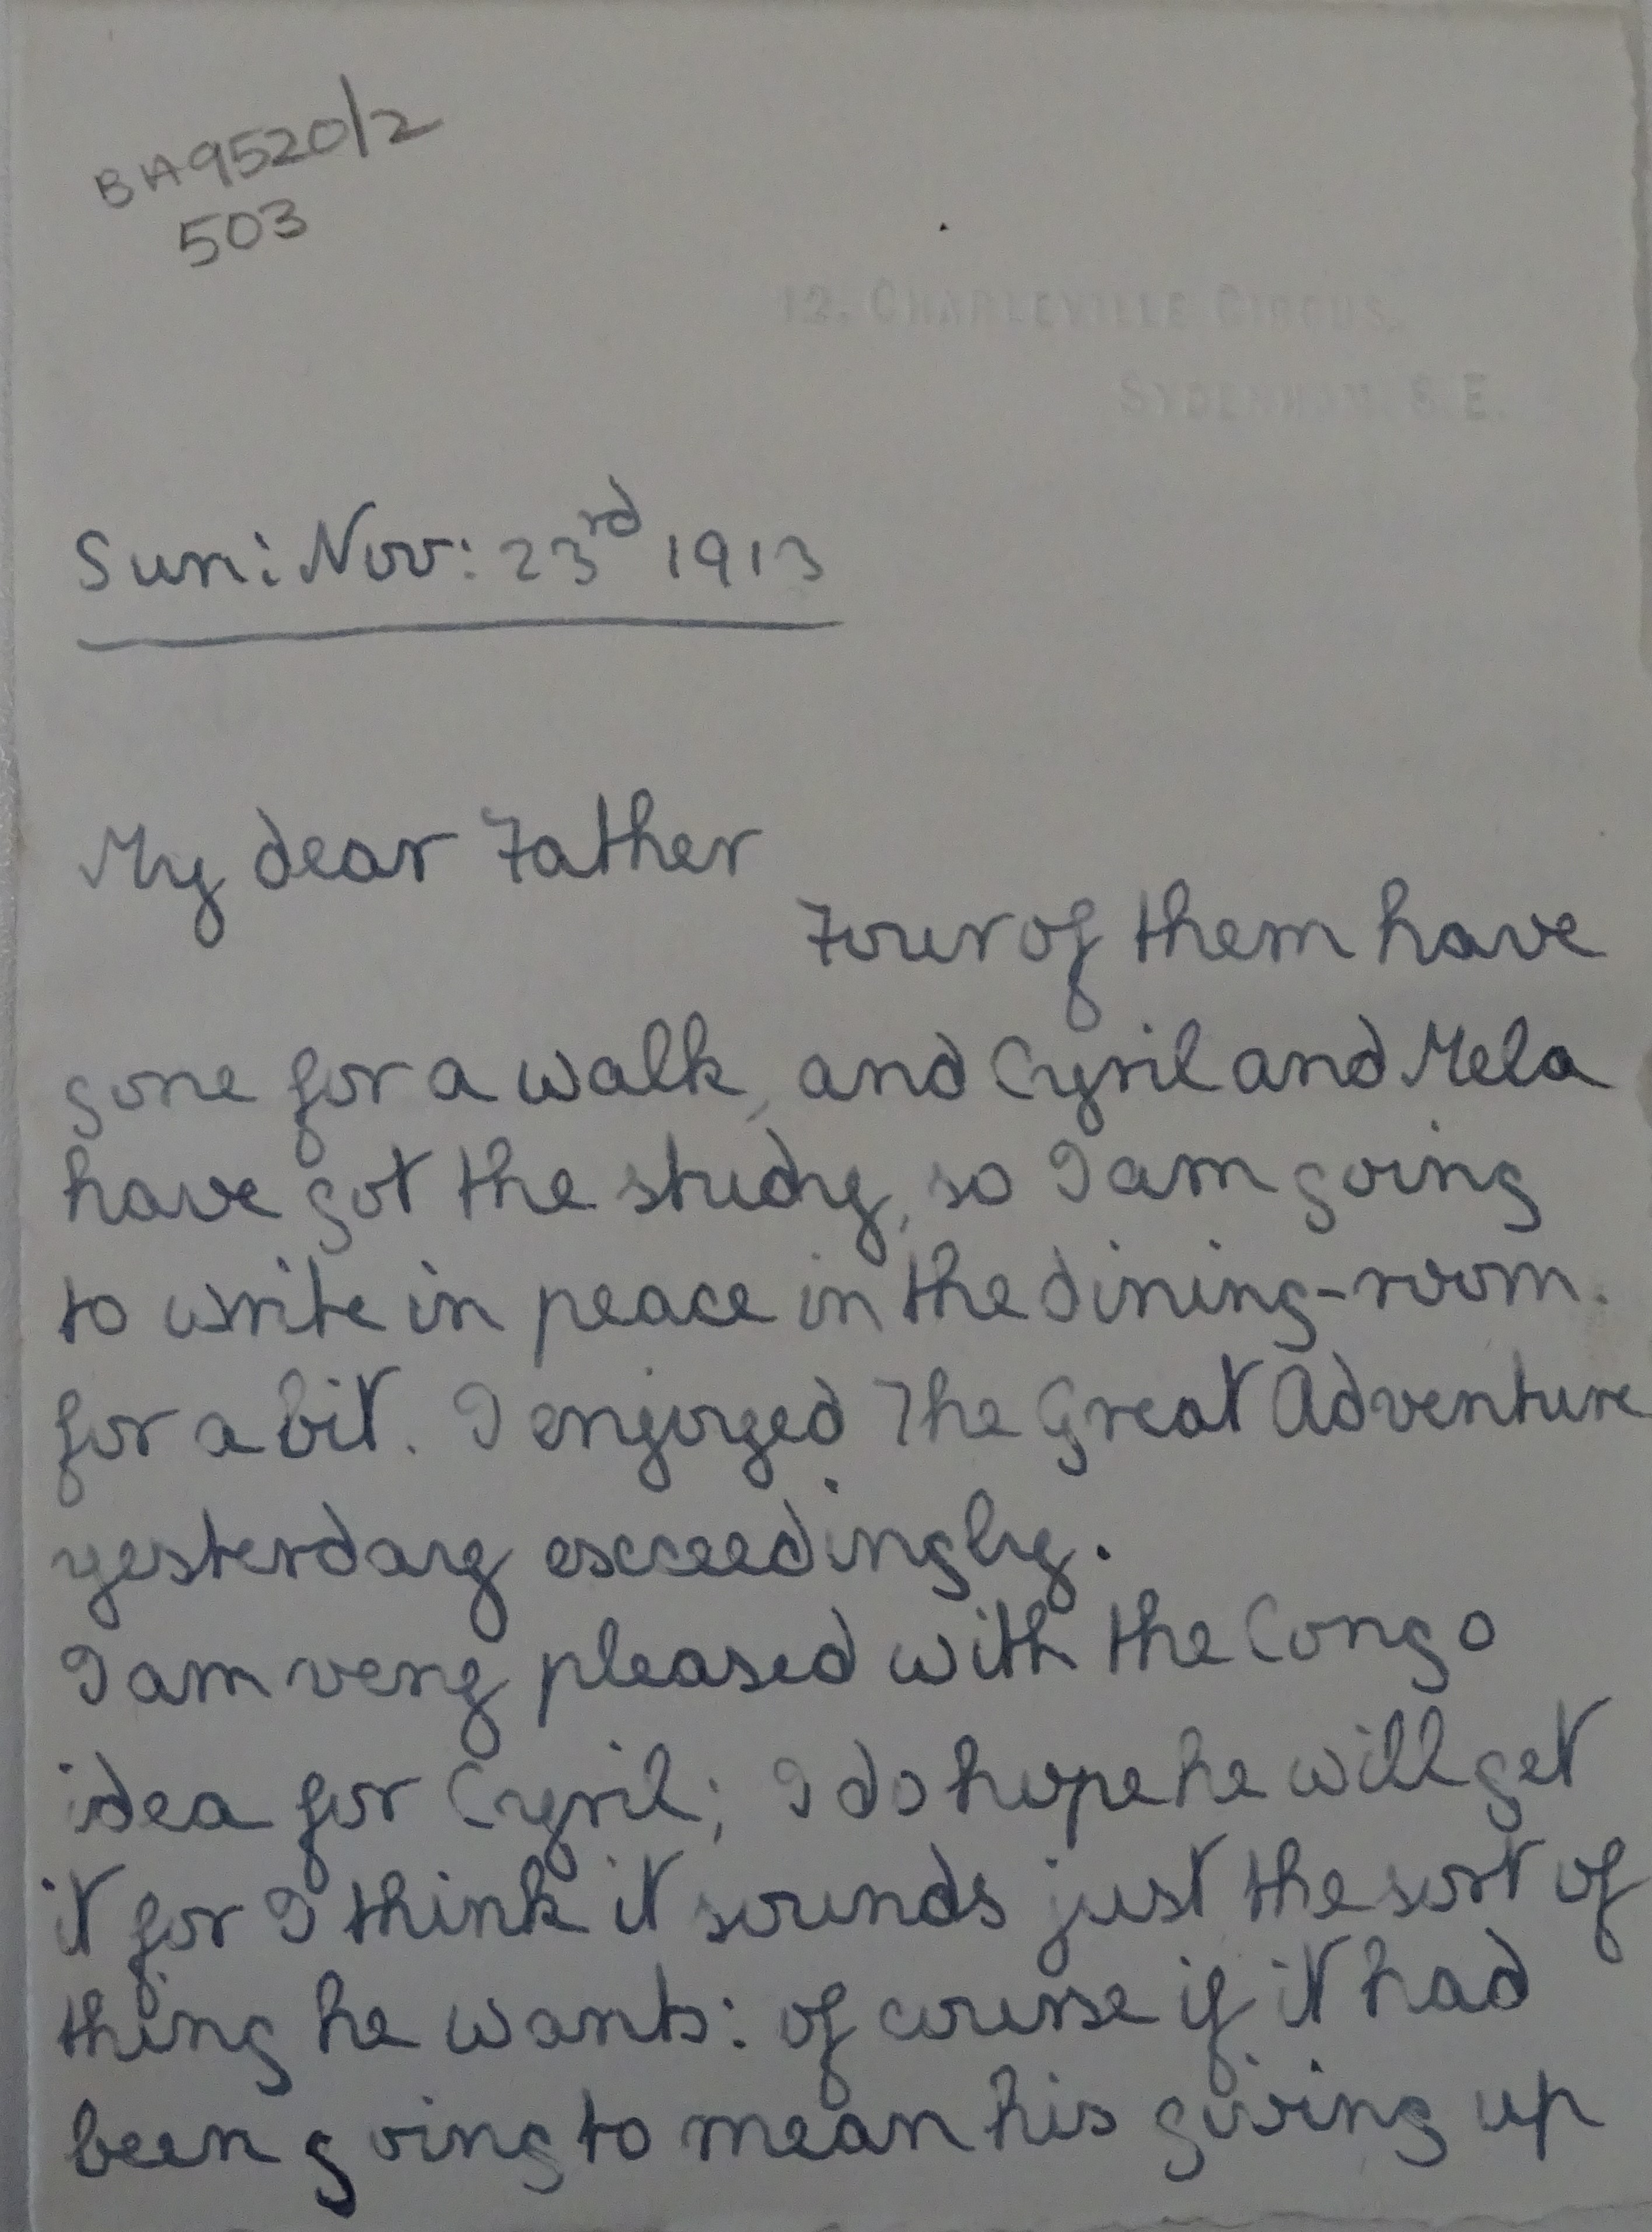 BA9520/2
503
12, CHARLEVILLE CIRCUS,
SYDENHAM. S.E.
Sun: Nov: 23rd 1913
My dear Father
Four of them have
gone for a walk, and Cyril and Mela
have got the study, so I am going
to write in peace in the dining-room.
for a bit. I enjoyed The Great Adventure
yesterday exceedingly.
I am very pleased with the Congo
idea for Cyril; I do hope he will get
it for I think it sounds just the sort of
thing he wants: of course if it had
been going to mean his giving up